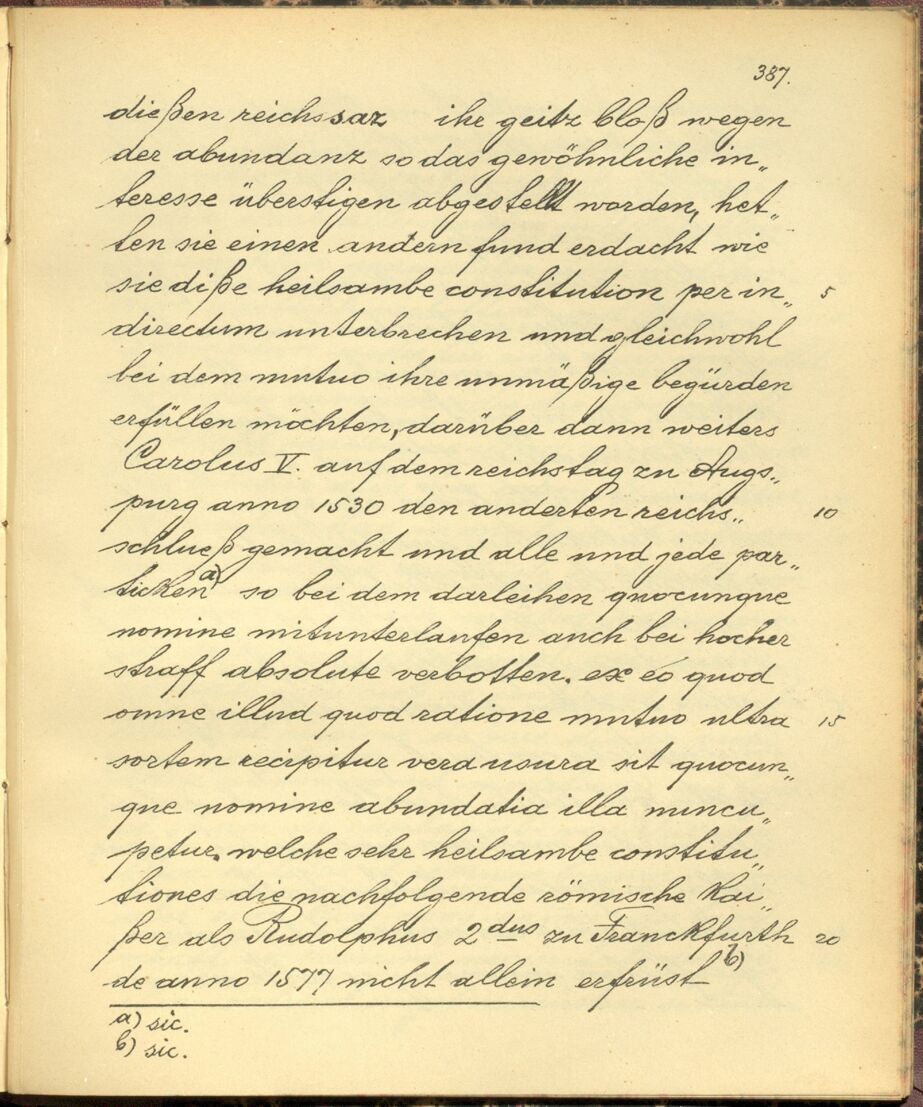 387.
dießen reichssaz ihr geitz bloß wegen
der abundanz so das gewöhnliche in„
teresse überstigen abgestellt worden, het„
ten sie einen andern fund erdacht wie
sie diße heilsambe constitution per in„ 5
directum unterbrechen und gleichwohl
bei dem mutuo ihre unmäßige begürden
erfüllen möchten, darüber dann weiters
Carolus V. auf dem reichstag zu Augs„
purg anno 1530 den anderten reichs„ 10
schlueß gemacht und alle und jede par„
ticken a) so bei dem darleihen quocunque
nomine mitunterlaufen auch bei hocher
straff absolute verbotten. ex eo quod
omne illud quod ratione mutuo ultra 15
sortem recipitur vera usura sit quocun„
que nomine abundatia illa nuncu„
petur, welche sehr heilsambe constitu„
tiones die nachfolgende römische Kai„
ßer als Rudolphus 2dus zu Franckfurth 20
de anno 1577 nicht allein erfrüst b)
a) sic.
b) sic.